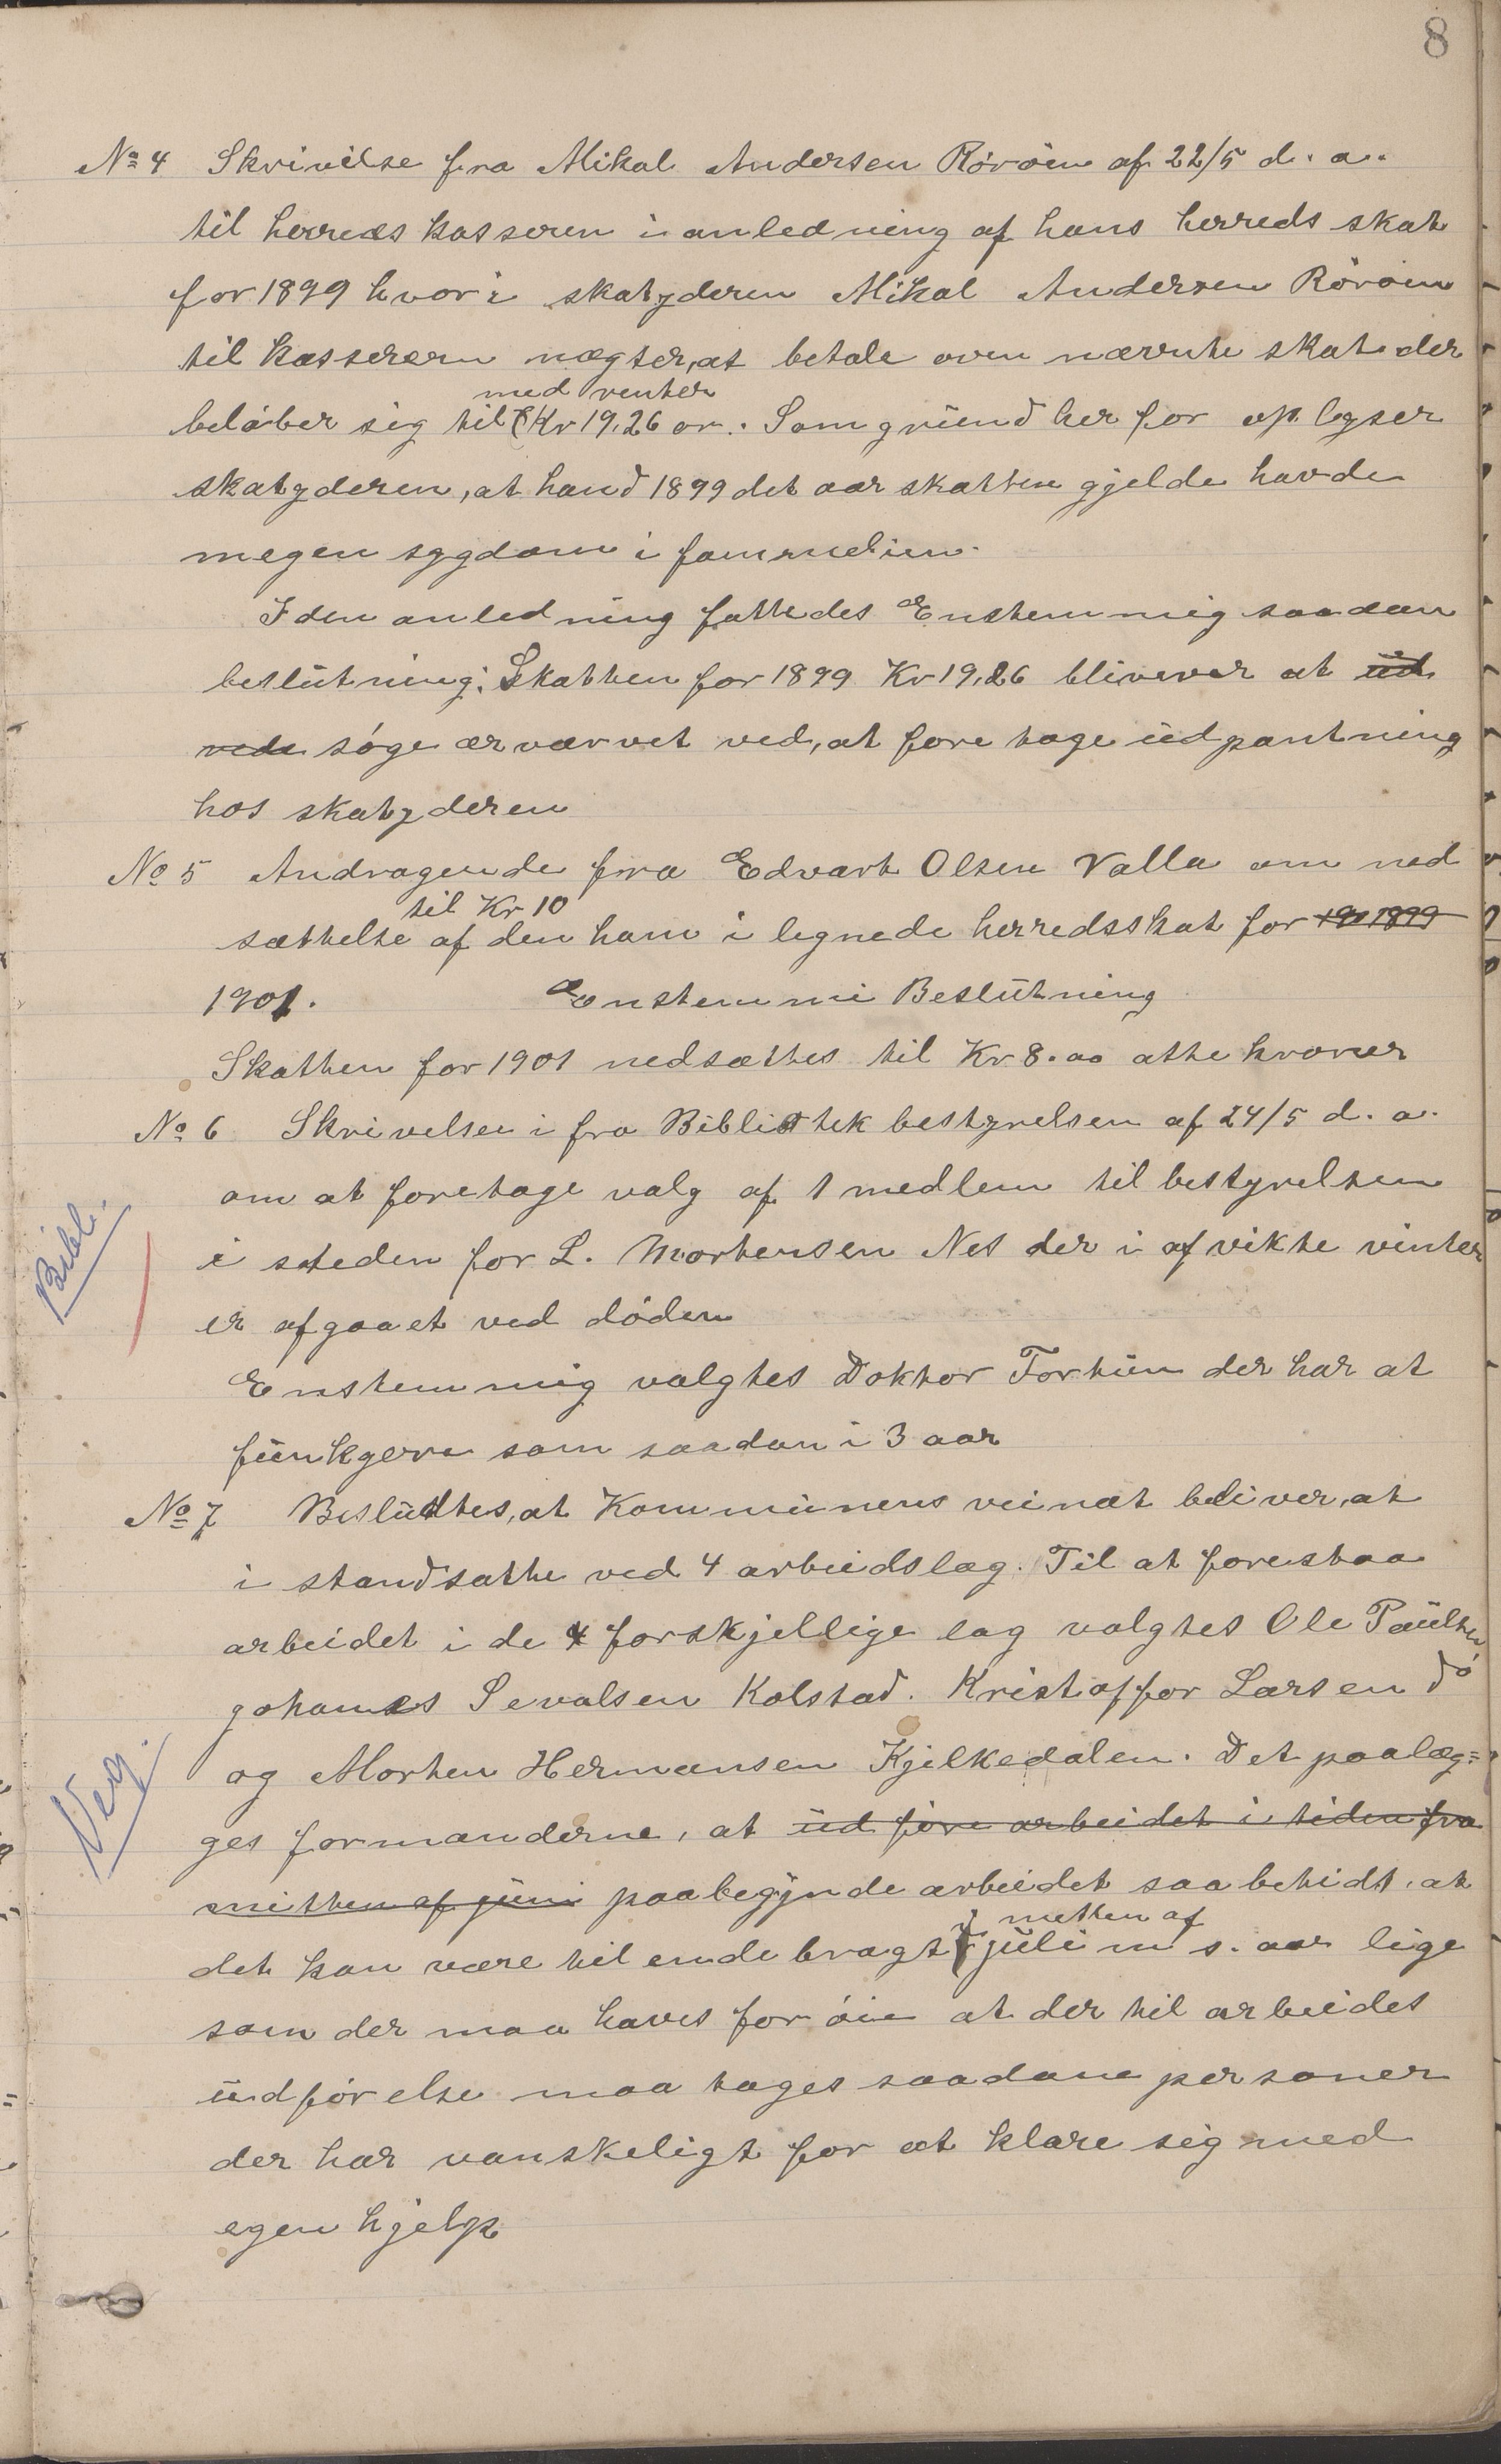 8
No 4 Skrivilse fra Mikal Andersen Röröien af 22/5 d. a.
til herreds kasseren i anledning af hans herreds skat
for 1899 hvori skatyderen Mikal Andersen Röröien
til kasserern nægter, at betale oven nævnte skat der
med renter
belöber sig til Kr 19,26 ør. Som grund her for oplyser
skatyderen, at hand 1899 det aar skatten gjelde havde
megen sygdom i fammelien.
I den anledning fattedes Enstemmig saadan
beslutning: Skatten for 1899 Kr 19,26 bliverer at ud
rede söge ærværvet ved, at fore tage udpantning
hos skatyderen
No 5 Andragende fra Edvart Olsen Valla om ned
til Kr 10
sættelse af den ham i lignede herredsskat for 190 1899
1901. Enstemmi Beslutning
Skatten for 1901 nedsættes til Kr 8.00 otte kroner
No 6 Skrivelse i fra Bibliotek bestyrelsen af 24/5 d. a.
om at foretage valg af 1 medlem til bestyrelsen
Bibl.
i steden for L. Mortensen Nes der i afvikte vinter
er afgaaet ved döden
Enstemmig valgtes Doktor Forhun der har at
funkgere som saadan i 3 aar
No 7 Besluttes, at Kommunens veinæt bliver, at
i standsætte ved 4 arbeidslag. Til at forestaa
arbeidet i de 4 forskjellige lag valgtes Ole Paulsen
johannes Sevalsen Kolstad. Kristoffor Larsen dó
og Morten Hermansen Kjelkedalen. Det paalæg=
Veg.
ges formanderne, at ud före arbeidet i tiden fra
mitten af juni paabegynde arbeidet saa betidt, at
metten af
det kan være til ende bragt i juli m s. aar lige
som der maa haves for öie at der til arbeidet
udförelse maa tages saadane personer
der har vanskeligt for at klare sig med
egen hjelp